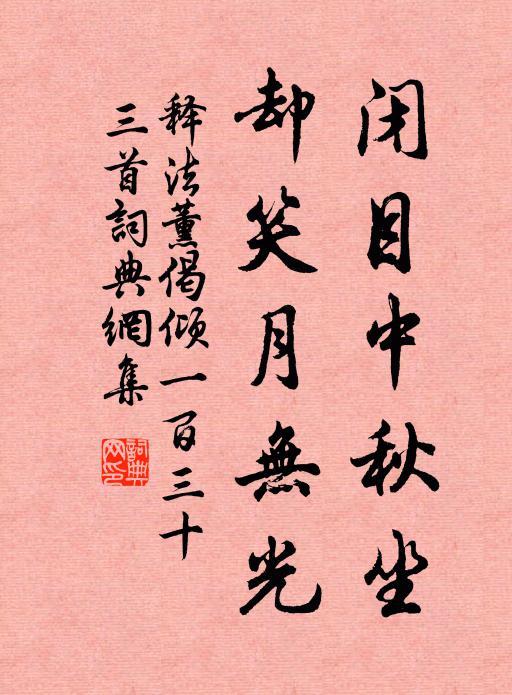 闭目中秋坐
却笑月無光
释法薰偈倾一百三十
三首詞典網集
詞典網印